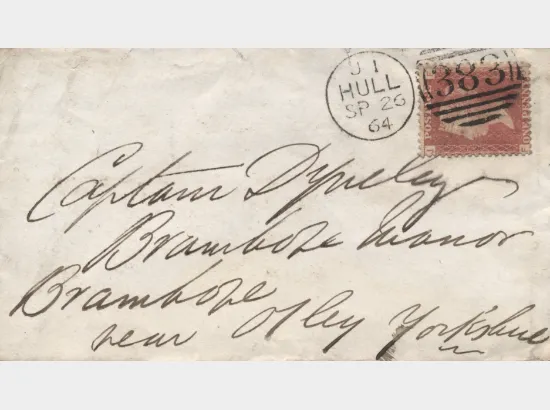 J 1
HULL
SP 26
64
383
POST
Captain Dyneley
Bramhope Manor
Bramhope
near Otley Yorkshire